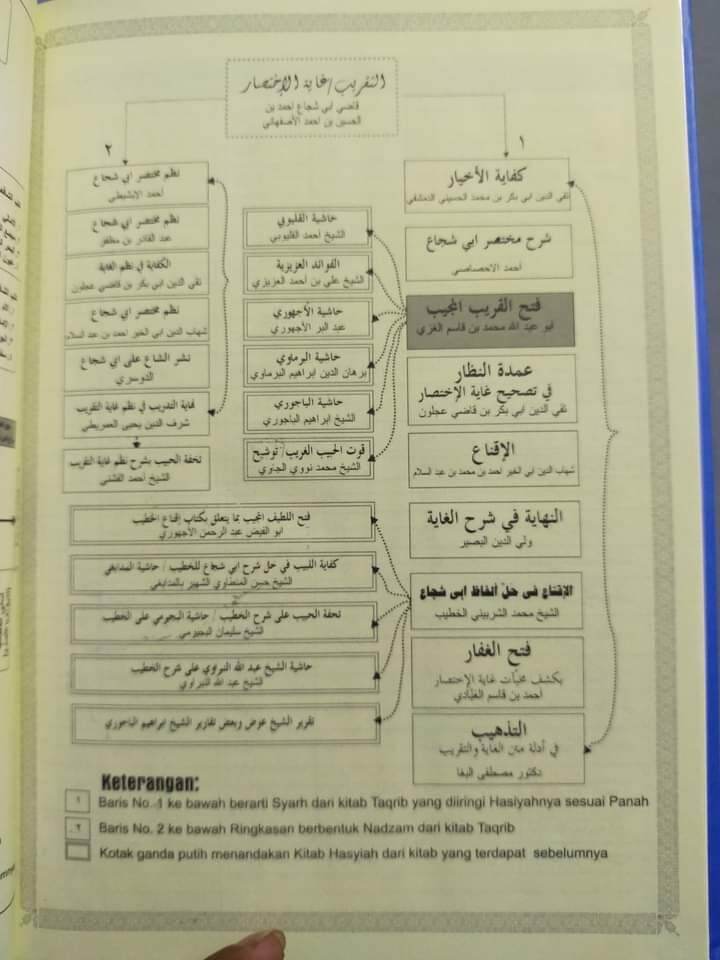 التقريب/غاية الإختصار
قاضي ابي شجاع احمد بن
الحسين بن احمد الأصفهاني
١
كفاية الأخيار
تقي الدين ابي بكر بن محمد الحسيني الدمشقي
شرح مختصر ابي شجاع
أحمد الاحصاصي
فتح القريب المجيب
ابو عبد الله محمد بن قاسم الغزي
عمدة النظار
في تصحيح غاية الإختصار
تقي الدين ابي بكر بن قاضي عجلون
الإقناع
شهاب الدين ابي الخير احمد بن محمد بن عبد السلام
النهاية في شرح الغاية
ولي الدين البصير
الإقناع في حل ألفاظ ابي شجاع
الشيخ محمد الشربيني الخطيب
فتح الغفار
بكشف مخبآت غاية الإختصار
أحمد بن قاسم العبادي
التذهيب
في أدلة متن الغاية والتقريب
دكتور مصطفى البغا
حاشية القليوبي
الشيخ أحمد القليوبي
الفوائد العزيزية
الشيخ علي بن احمد العزيزي
حاشية الأجهوري
عبد البر الأجهوري
حاشية البرماوي
برهان الدين ابراهيم البرماوي
حاشية الباجوري
الشيخ ابراهيم الباجوري
قوت الحبيب الغريب/ توشيح
الشيخ محمد نووي الجاوي
فتح اللطيف المجيب بما يتعلق بكتاب إقناع الخطيب
ابو الفيض عبد الرحمن الأجهوري
كفاية اللبيب في حل شرح ابي شجاع للخطيب / حاشية المدابغي
الشيخ حسن المنطاوي الشهير بالمدابغي
تحفة الحبيب على شرح الخطيب / حاشية البجيرمي على الخطيب
الشيخ سليمان البجيرمي
حاشية الشيخ عبد الله النبراوي على شرح الخطيب
الشيخ عبد الله النبراوي
تقرير الشيخ عوض وبعض تقارير الشيخ ابراهيم الباجوري
٢
نظم مختصر ابي شجاع
أحمد الإبشيطي
نظم مختصر ابي شجاع
عبد القادر بن مظفر
الكفاية في نظم الغاية
تقي الدين ابي بكر بن قاضي عجلون
نظم مختصر ابي شجاع
شهاب الدين ابي الخير احمد بن عبد السلام
نشر الشعاع على ابي شجاع
الدوسري
نهاية التدريب في نظم غاية التقريب
شرف الدين يحيى العمريطي
تحفة الحبيب بشرح نظم غاية التقريب
الشيخ أحمد الفشني
Keterangan:
١ Baris No. 1 ke bawah berarti Syarh dari kitab Taqrib yang diiringi Hasiyahnya sesuai Panah
٢ Baris No. 2 ke bawah Ringkasan berbentuk Nadzam dari kitab Taqrib
Kotak ganda putih menandakan Kitab Hasyiah dari kitab yang terdapat sebelumnya